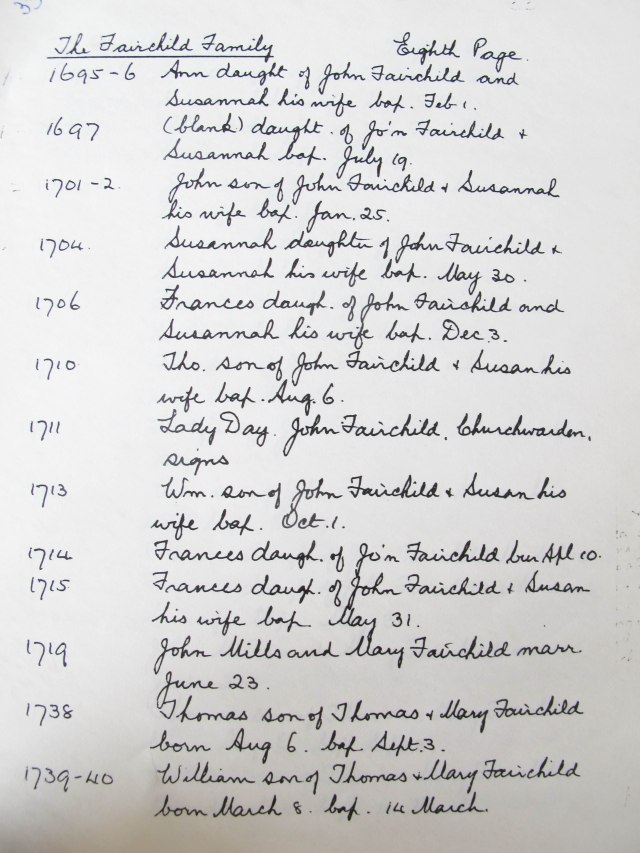 The Fairchild Family Eighth Page.
1695-6 Ann daught of John Fairchild and
Susannah his wife bap. Feb 1.
1697 (blank) daught. of Jo'n Fairchild +
Susannah bap. July 19.
1701-2. John son of John Fairchild + Susannah
his wife bap. Jan. 25.
1704. Susannah daughter of John Fairchild +
Susannah his wife bap. May 30.
1706 Frances daugh. of John Fairchild and
Susannah his wife bap. Dec 3.
1710 Tho. son of John Fairchild + Susan his
wife bap. Aug. 6.
1711 Lady Day. John Fairchild. Churchwarden,
signs
1713 Wm. son of John Fairchild + Susan his
wife bap. Oct. 1.
1714 Frances daugh. of Jo'n Fairchild bur Apl 10.
1715 Frances daugh. of John Fairchild + Susan
his wife bap May 31.
1719 John Mills and Mary Fairchild marr.
June 23.
1738 Thomas son of Thomas + Mary Fairchild
born Aug 6. bap. Sept. 3.
1739-40 William son of Thomas + Mary Fairchild
born March 8. bap. 14 March.